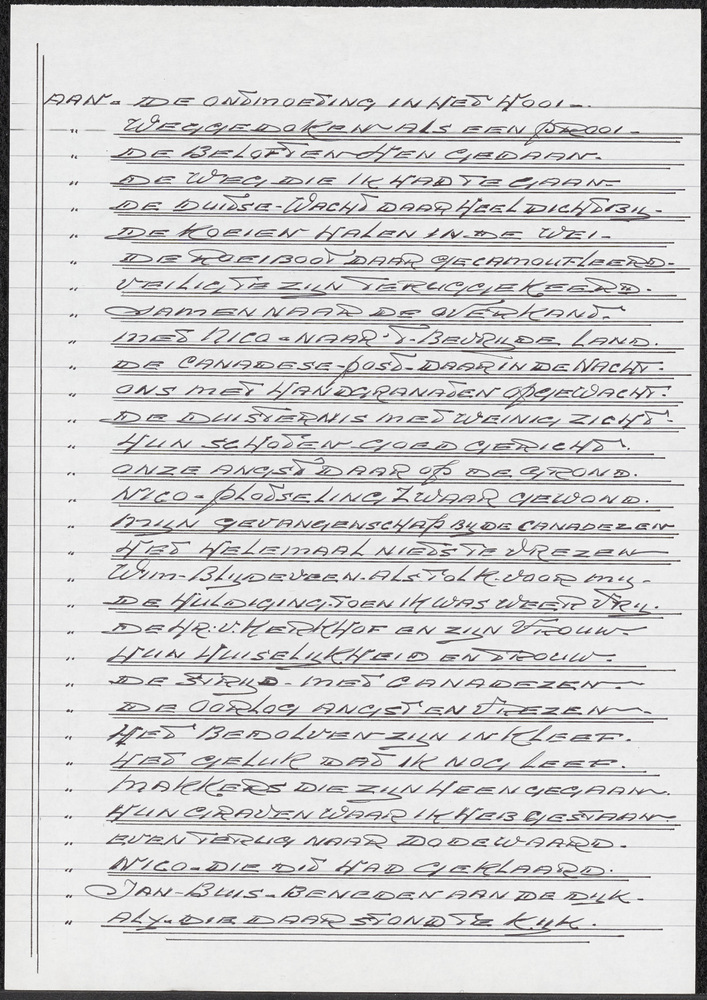 AAN. DE ONTMOETING IN HET HOOI -.
" WEGGEDOKEN ALS EEN PROOI -
" DE BELOFTEN HEN GEDAAN.
" DE WEG DIE IK HAD TE GAAN-
" DE DUITSE-WACHT DAAR HEEL DICHTBIJ-
" DE KOEIEN HALEN IN DE WEI -
" DE ROEIBOOT DAAR GECAMOUFLEERD-
" VEILIG TE ZIJN TERUGGEKEERD.
" SAMEN NAAR DE OVERKANT.
" MET NICO - NAAR 'T - BEVRIJDE LAND.
" DE CANADESE-POST-DAAR IN DE NACHT.
" ONS MET HANDGRANATEN OPGEWACHT.
" DE DUISTERNIS MET WEINIG ZICHT-
" HUN SCHOTEN GOED GERICHT.
" ONZE ANGST DAAR OP DE GROND.
" NICO - PLOTSELING ZWAAR GEWOND.
" MIJN GEVANGENSCHAP BIJ DE CANADEZEN
" HET HELEMAAL NIETS TE VREZEN
" WIM-BLIJDEVEEN. ALS TOLK. VOOR MIJ-
" DE HULDIGING. TOEN IK WAS WEER VRIJ.
" DE HR. V. KERKHOF EN ZIJN VROUW-
" HUN HUISELIJKHEID EN TROUW.
" DE STRIJD - MET CANADEZEN.
" DE OORLOG ANGST EN VREZEN.
" HET BEDOLVEN ZIJN IN KLEEF.
" HET GELUK DAT IK NOG LEEF.
" MAKKERS DIE ZIJN HEENGEGAAN.
" HUN GRAVEN WAAR IK HEB GESTAAN-
" EVEN TERUG NAAR DODEWAARD.
" NICO-DIE DIT HAD GEKLAARD.
" JAN-BUIS-BENEDEN AAN DE DIJK.
" ALY-DIE DAAR STOND TE KIJK.